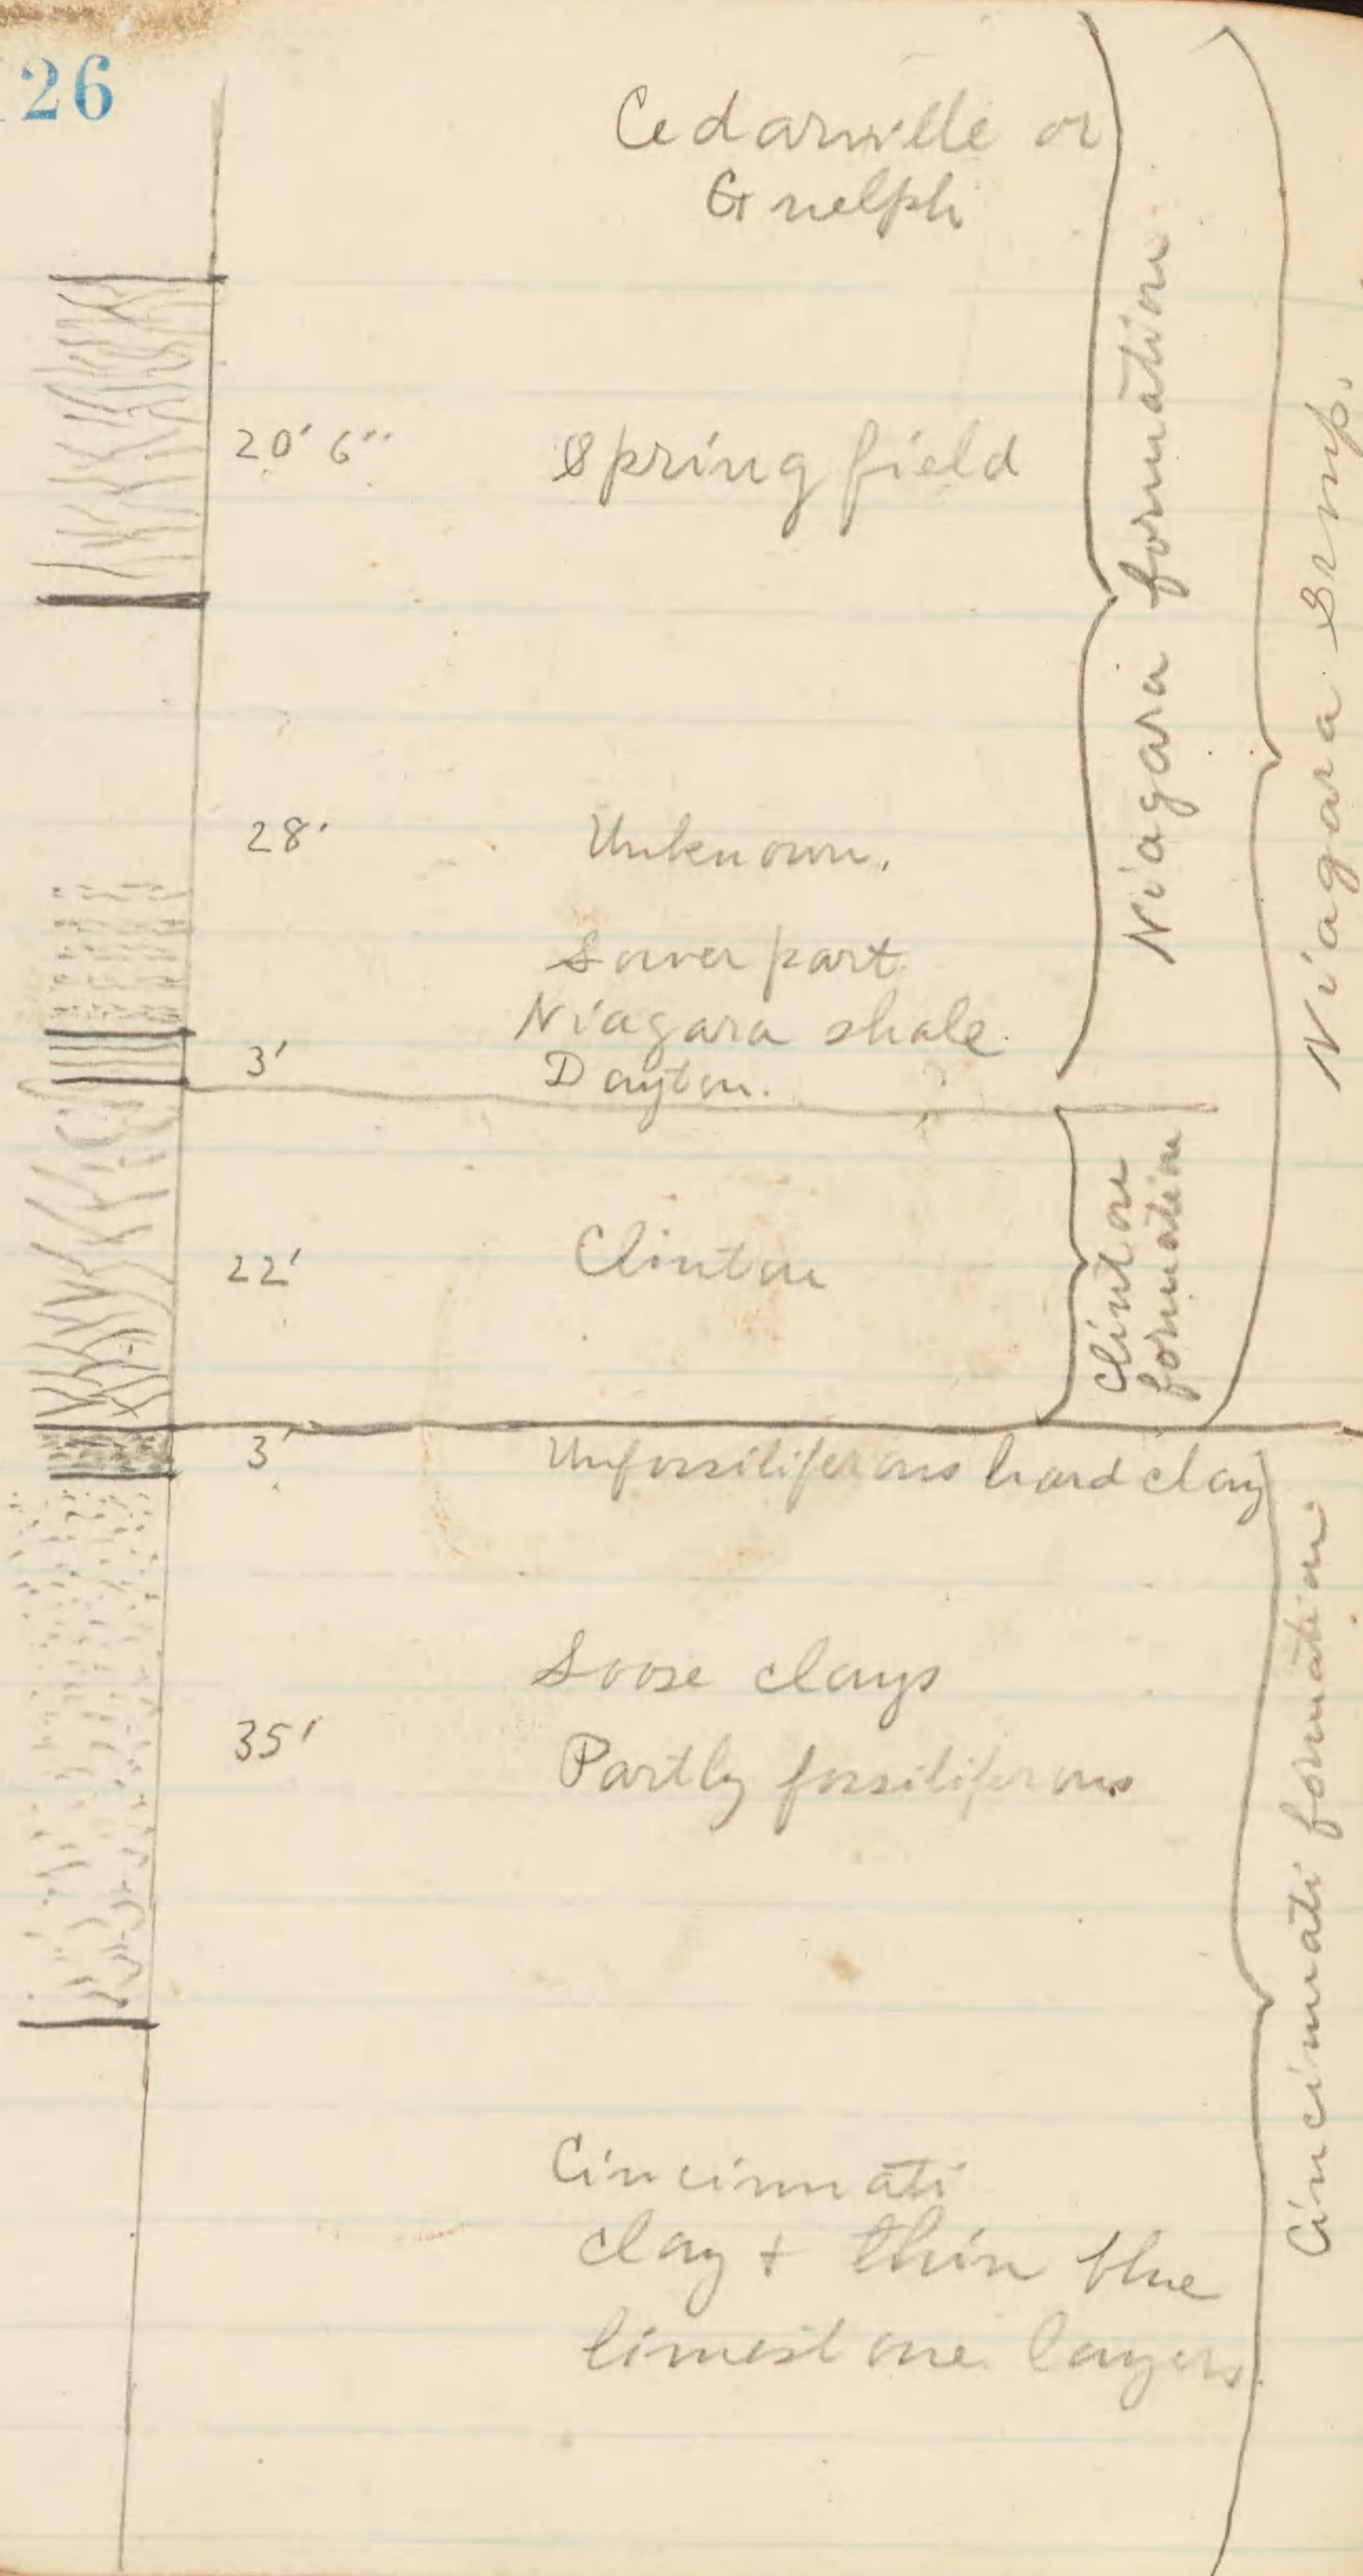 126
Cedarville or
Guelph
20' 6"
Springfield
28'
Unknown.
Lower part
Niagara shale.
3'
Dayton.
22'
Clinton
3'
Unfossiliferous hard clay
Loose clays
35'
Partly fossiliferous
Cincinnati
clay + thin blue
limestone layers.
Niagara formation
Clinton
formation
Niagara Group.
Cincinnati formation